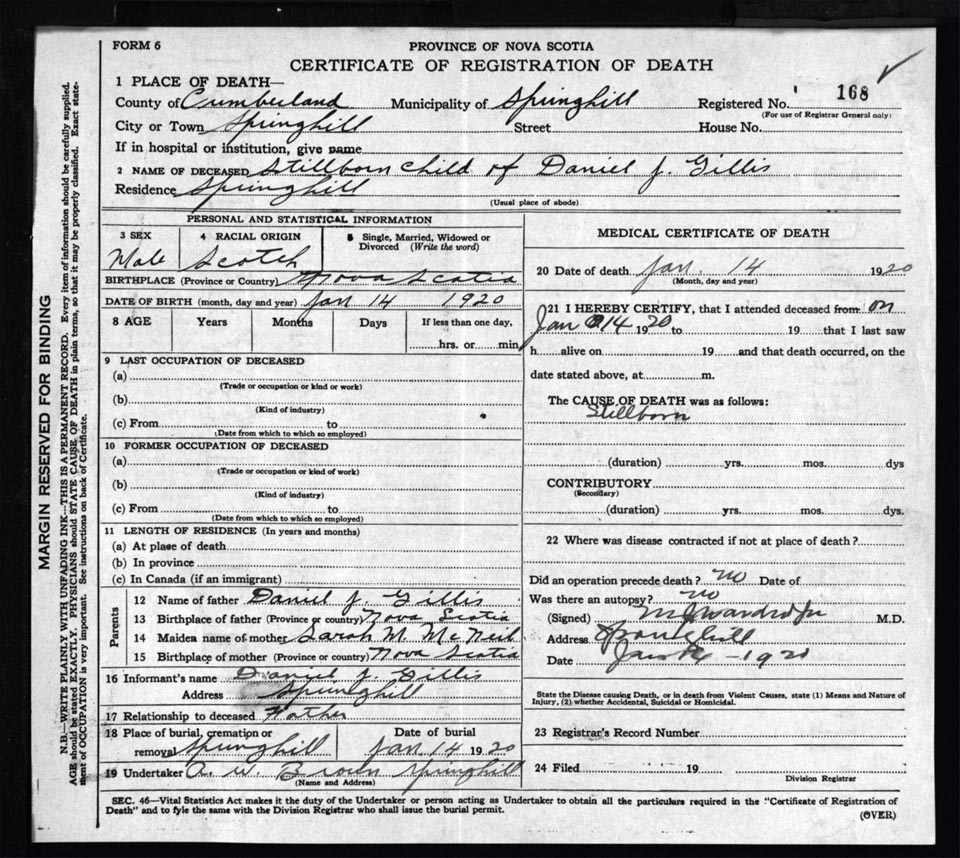 FORM 6
PROVINCE OF NOVA SCOTIA
CERTIFICATE OF REGISTRATION OF DEATH
1 PLACE OF DEATH—
County of Cumberland Municipality of Springhill Registered No. 168
(For use of Registrar General only)
City or Town Springhill Street House No.
If in hospital or institution, give name
2 NAME OF DECEASED Stillborn child of Daniel J. Gillis
Residence Springhill
(Usual place of abode)
PERSONAL AND STATISTICAL INFORMATION
3 SEX 4 RACIAL ORIGIN 5 Single, Married, Widowed or Divorced (Write the word)
Male Scotch
BIRTHPLACE (Province or Country) Nova Scotia
DATE OF BIRTH (month, day and year) Jan 14 1920
8 AGE Years Months Days If less than one day,
hrs. or min
9 LAST OCCUPATION OF DECEASED
(a)
(Trade or occupation or kind or work)
(b)
(Kind of industry)
(c) From to
(Date from which to which so employed)
10 FORMER OCCUPATION OF DECEASED
(a)
(Trade or occupation or kind of work)
(b)
(Kind of industry)
(c) From to
(Date from which to which so employed)
11 LENGTH OF RESIDENCE (In years and months)
(a) At place of death
(b) In province
(c) In Canada (if an immigrant)
Parents
12 Name of father Daniel J. Gillis
13 Birthplace of father (Province or country) Nova Scotia
14 Maiden name of mother Sarah M. McNeil
15 Birthplace of mother (Province or country) Nova Scotia
16 Informant's name Daniel J. Gillis
Address Springhill
17 Relationship to deceased Father
18 Place of burial, cremation or Date of burial
removal Springhill Jan 14 1920
19 Undertaker A. W. Brown Springhill
(Name and Address)
MEDICAL CERTIFICATE OF DEATH
20 Date of death Jan. 14 1920
(Month, day and year)
21 I HEREBY CERTIFY, that I attended deceased from on
Jan 14 1920 to 19 that I last saw
h alive on 19 and that death occurred, on the
date stated above, at m.
The CAUSE OF DEATH was as follows:
Stillborn
(duration) yrs. mos. dys
CONTRIBUTORY
(Secondary)
(duration) yrs. mos. dys.
22 Where was disease contracted if not at place of death?
Did an operation precede death? no Date of
Was there an autopsy? no
(Signed) M.D.
Address Springhill
Date Jan 14 - 1920
State the Disease causing Death, or in death from Violent Causes, state (1) Means and Nature of
Injury, (2) whether Accidental, Suicidal or Homicidal.
23 Registrar's Record Number
24 Filed 19
Division Registrar
SEC. 46—Vital Statistics Act makes it the duty of the Undertaker or person acting as Undertaker to obtain all the particulars required in the "Certificate of Registration of
Death" and to fyle the same with the Division Registrar who shall issue the burial permit.
(OVER)
MARGIN RESERVED FOR BINDING
N.B.—WRITE PLAINLY WITH UNFADING INK—THIS IS A PERMANENT RECORD. Every item of information should be carefully supplied.
AGE should be stated EXACTLY. PHYSICIANS should STATE CAUSE OF DEATH in plain terms, so that it may be properly classified. Exact state-
ment of OCCUPATION is very important. See instructions on back of Certificate.